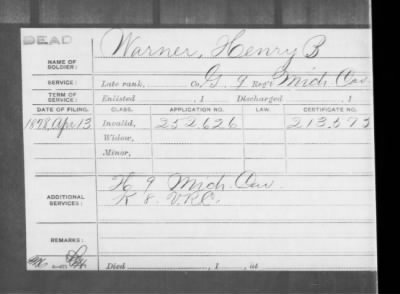 DEAD
Warner, Henry B
NAME OF SOLDIER:
SERVICE: Late rank, Co. G, 9 Reg't Mich Cav.
TERM OF SERVICE: Enlisted , 1 Discharged , 1
DATE OF FILING. CLASS. APPLICATION NO. LAW. CERTIFICATE NO.
1878, Apr 13 Invalid, 252,626 213,592
Widow,
Minor,
ADDITIONAL SERVICES:
H 9 Mich Cav.
K 8. V.R.C.
REMARKS:
Died , 1 , at